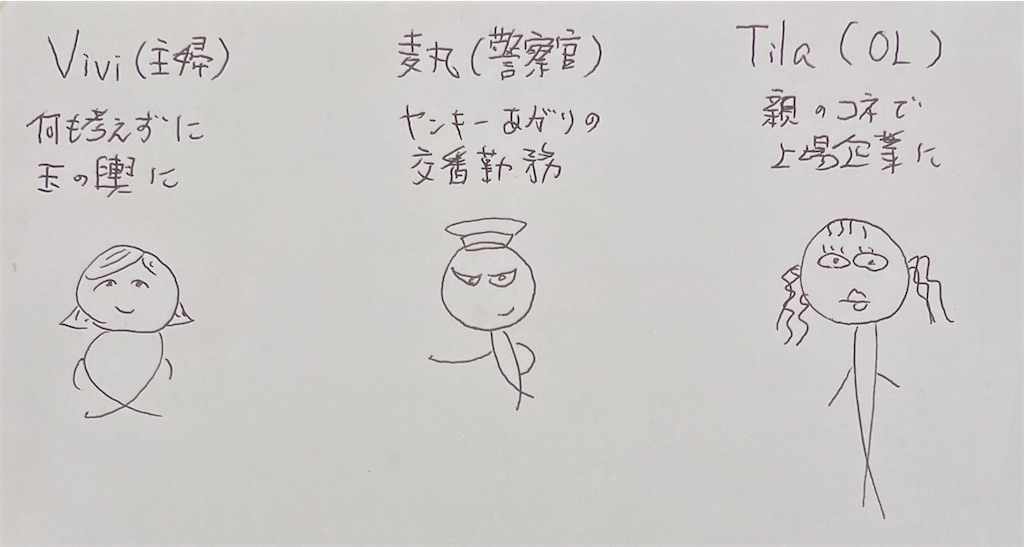 Vivi(主婦)
何も考えずに
玉の輿に
麦丸(警察官)
ヤンキーあがりの
交番勤務
Tila(OL)
親のコネで
上場企業に